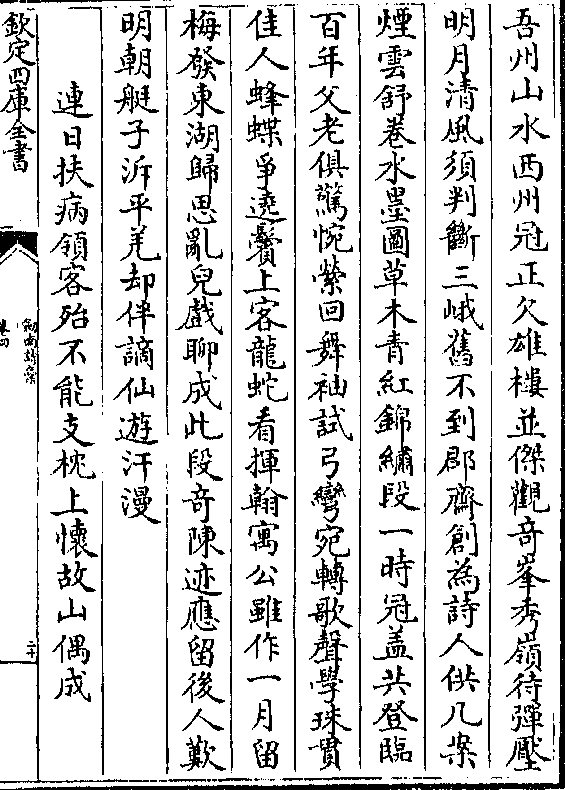 吾州山水西州冠正欠雄樓並傑觀奇峯秀嶺待彈壓
明月清風須判斷三峨舊不到郡齋創為詩人供几案
煙雲舒卷水墨圖草木青紅錦繡段一時冠盖共登臨
百年父老俱驚惋縈回舞袖試弓彎宛轉歌聲學珠貫
佳人蜂蝶爭遶鬢上客龍蛇看揮翰寓公雖作一月留
梅發東湖歸思亂兒戲聊成此段奇陳迹應留後人歎
明朝艇子泝平羌却伴謫仙遊汗漫
連日扶病領客殆不能支枕上懷故山偶成
欽定四庫全書
劒南詩稾
卷四
二十